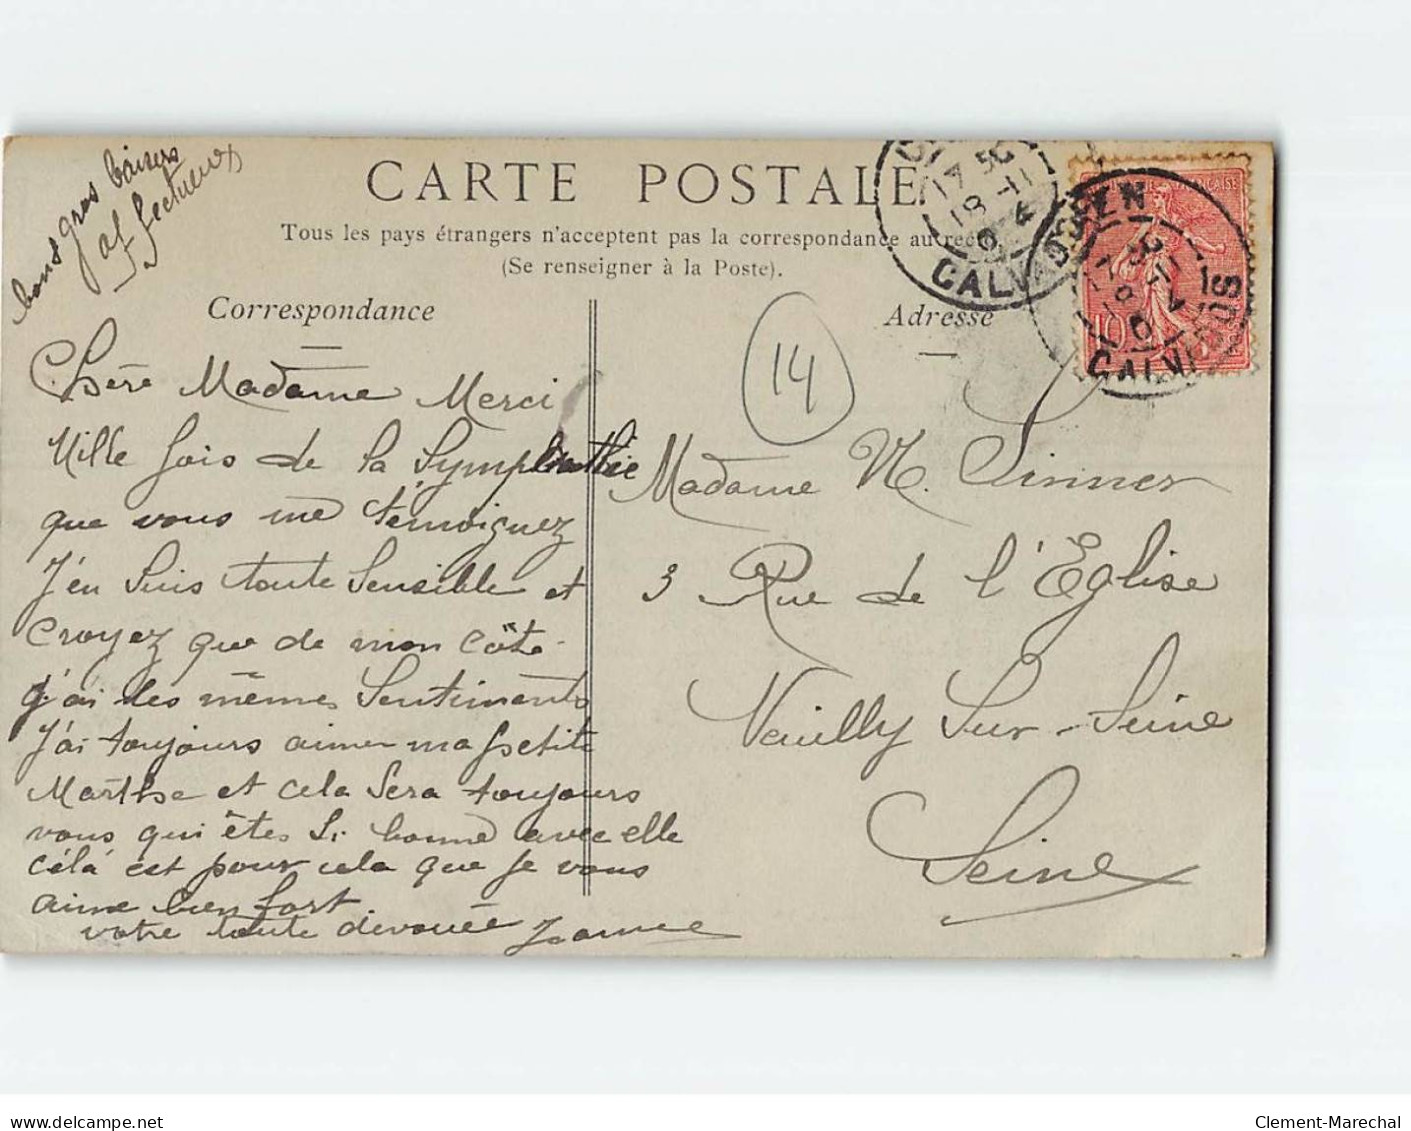 bons gros baisers
affectueux
CARTE POSTALE
Tous les pays étrangers n'acceptent pas la correspondance au recto
(Se renseigner à la Poste).
Correspondance
Chère Madame Merci
Mille fois de la Symphathie
que vous me témoignez
J'en suis toute Sensible et
croyez que de mon côté
j'ai les mêmes Sentiments
J'ai toujours aimer ma petite
Marthe et cela Sera toujours
vous qui êtes Si bonne avec elle
célà est pour cela que je vous
aime bien fort
votre toute dévouée Jeanne
Adresse
14
Madame
3 Rue de l'Eglise
Neuilly Sur-Seine
Seine
17 50
18 -11
CALVADOS
10
CAEN
CALVADOS
delcampe.net
Clement-Marechal